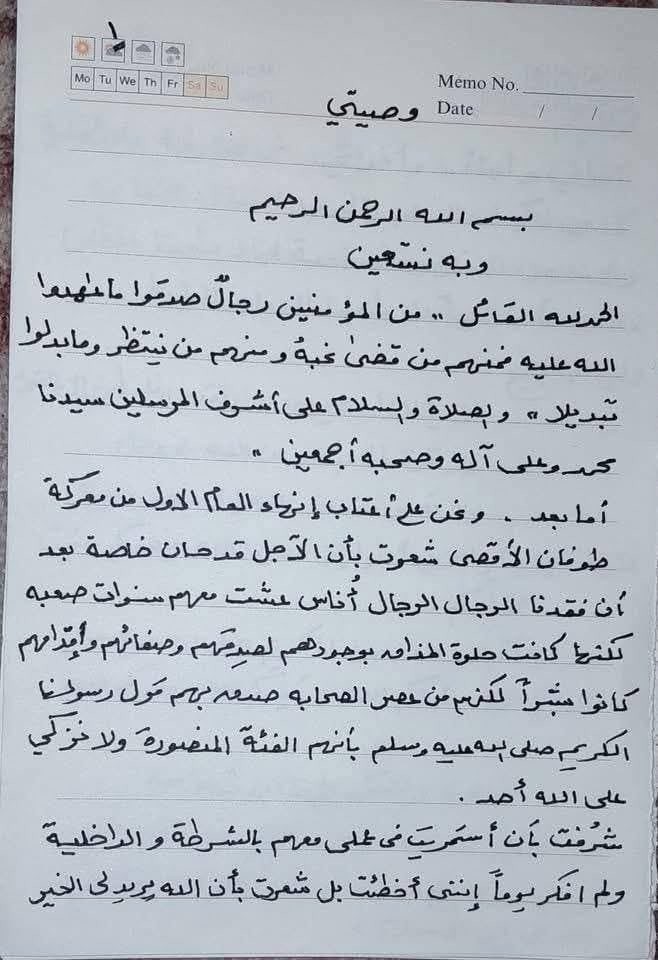 ١
Mo Tu We Th Fr Sa Su
Memo No.
Date / /
وصيتي
بسم الله الرحمن الرحيم
وبه نستعين
الحمدلله القائل ,, من المؤمنين رجالٌ صدقوا ما عاهدوا
الله عليه فمنهم من قضى نحبهُ ومنهم من ينتظر وما بدلوا
تبديلا ,, والصلاة والسلام على أشرف المرسلين سيدنا
محمد وعلى آله وصحبه أجمعين ,,
أما بعد . ونحن على أعتاب إنهاء العام الاول من معركة
طوفان الأقصى شعرت بأن الآجل قد حان خاصة بعد
أن فقدنا الرجال الرجال أُناس عشت معهم سنوات صعبه
لكنها كانت حلوة المذاق بوجودهم لصدقهم وصفائهم وإقدامهم
كانوا بشراً لكنهم من عصر الصحابه صدق بهم قول رسولنا
الكريم صلى الله عليه وسلم بأنهم الفئة المنصورة ولا نزكي
على الله أحد .
شرُفت بأن أستمريت في عملي معهم بالشرطة والداخلية
ولم افكر يوماً إنني أخطئت بل شعرت بأن الله يريد لي الخير